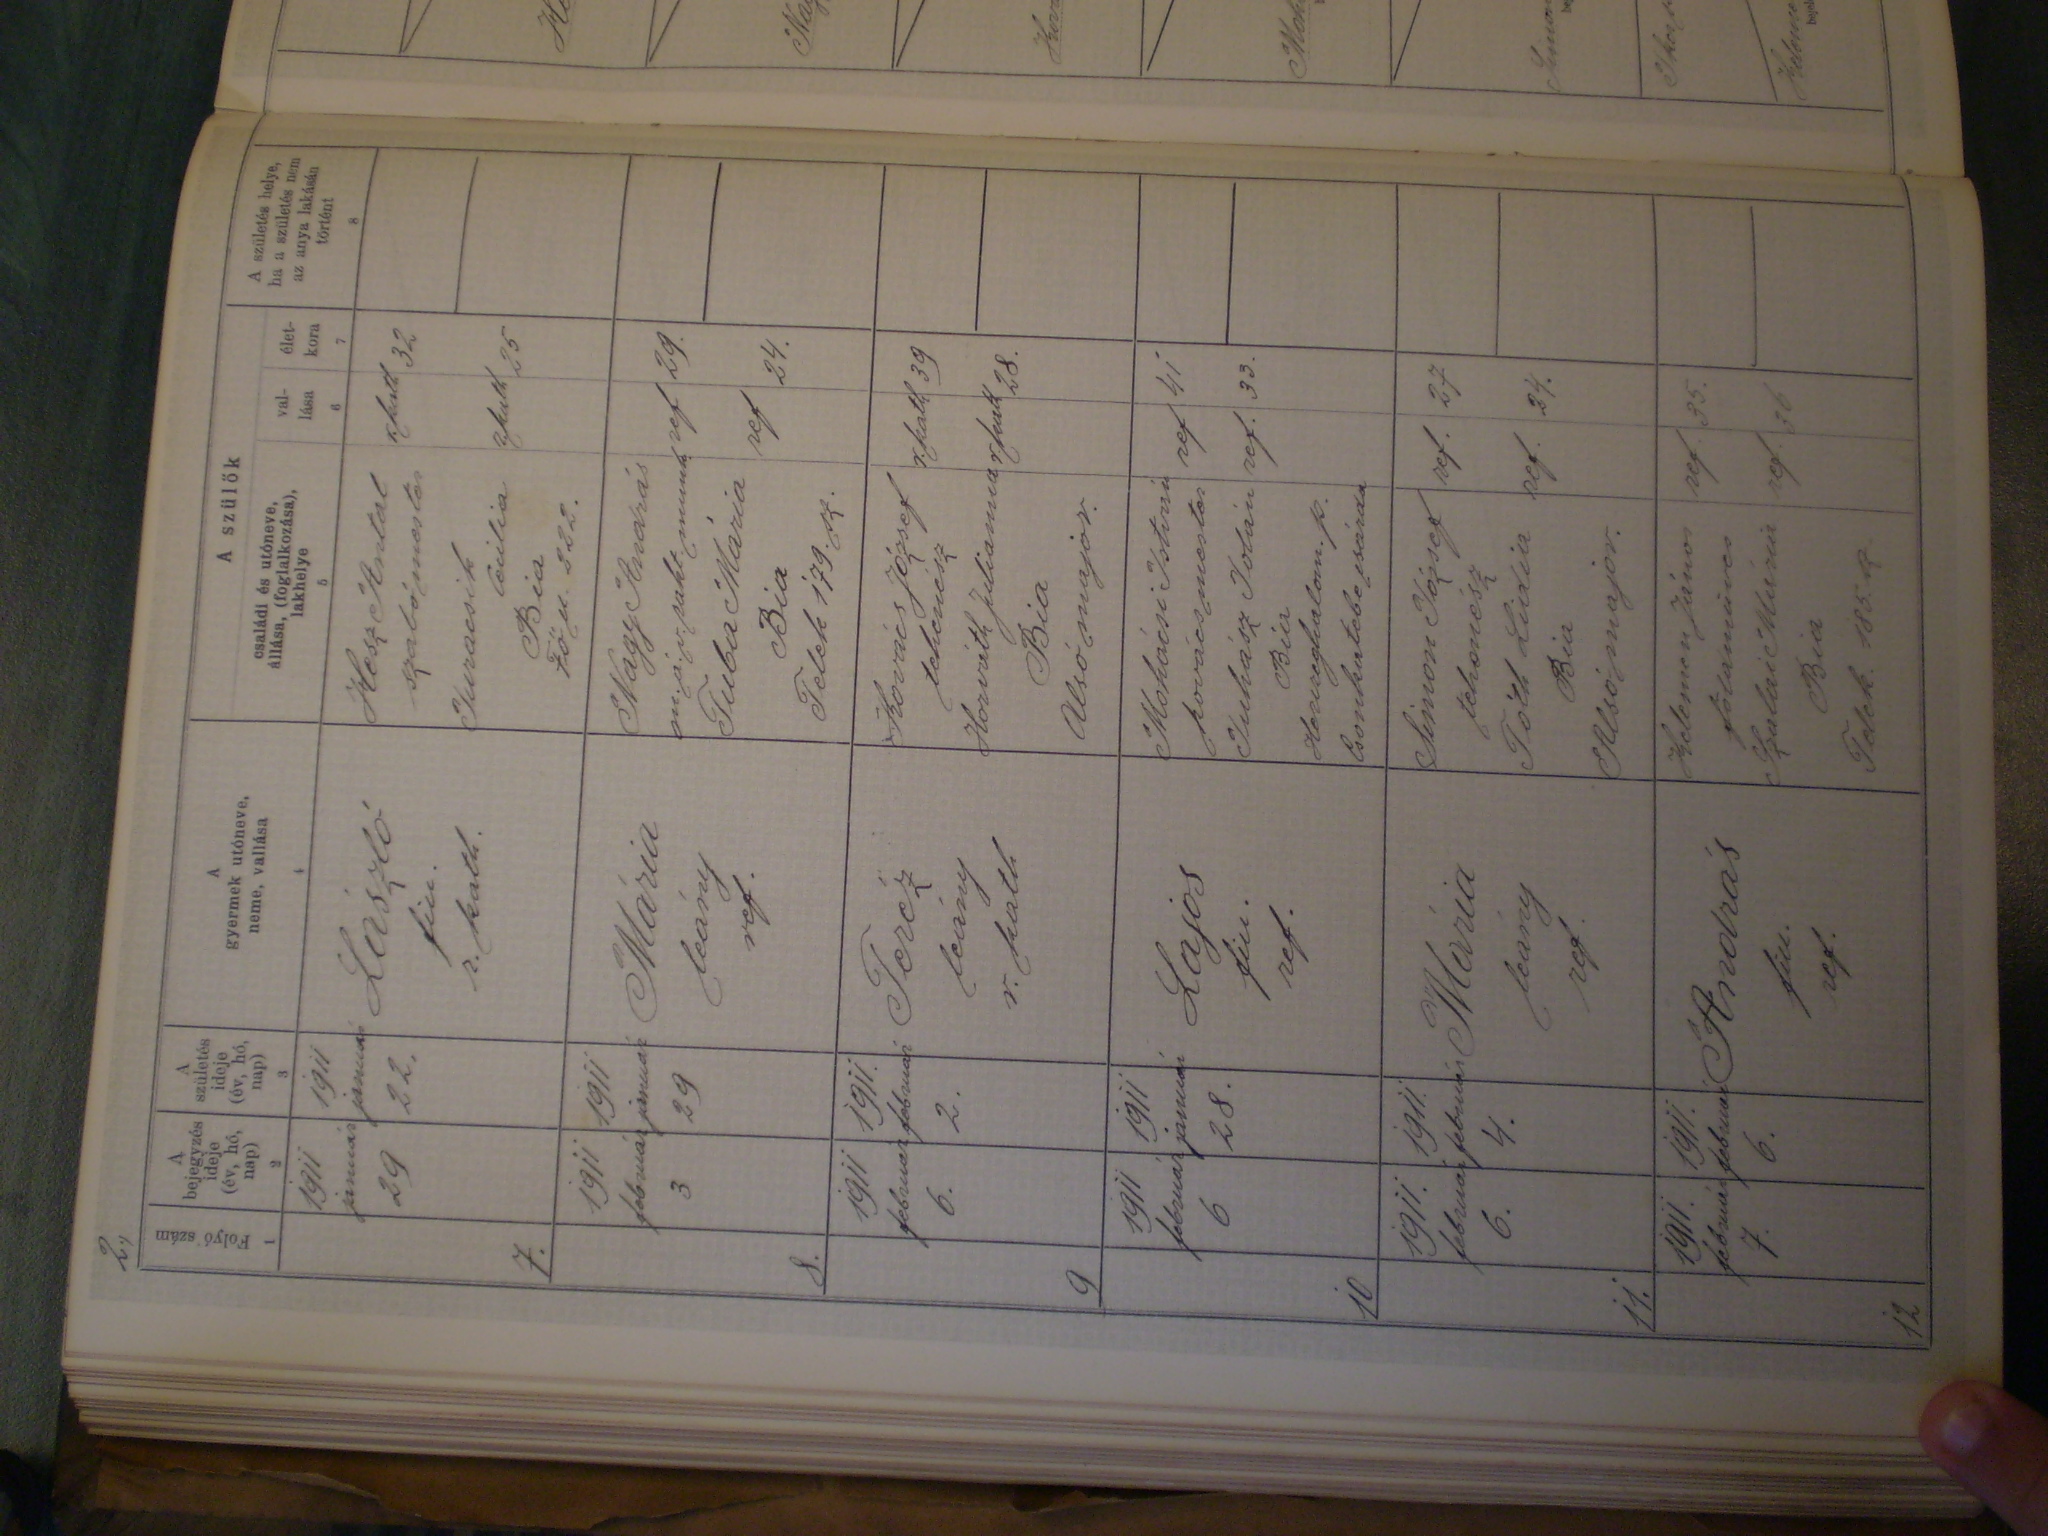 2.
Folyó szám
1
A
bejegyzés
ideje
(év, hó,
nap)
2
A
születés
ideje
(év, hó,
nap)
3
A
gyermek utóneve,
neme, vallása
4
A szülők
családi és utóneve,
állása, (foglalkozása),
lakhelye
5
val-
lása
6
élet-
kora
7
A születés helye,
ha a születés nem
az anya lakásán
történt
8
7.
1911
január
29
1911
január
22.
László
fiu.
r. kath.
Hesz Antal
szabómester
r. kath 32
Juracsik
Cecilia
r. kath 25
Bia
Föu. 322.
8.
1911
február
3
1911
január
29
Mária
leány
ref.
Nagy András
ref 29.
Tuba Mária
ref 24.
Bia
Telek 179. sz.
9
1911
február
6.
1911.
február
2.
Teréz
leány
r. kath
Kovács József
tehenész
r. kath 39
Horváth Julianna
r. kath 28.
Bia
Alsó major.
10
1911
február
6
1911
január
28.
Lajos
fiu.
ref.
Mohácsi István
kovácsmester
ref 41
Juhász Zotán
ref. 33.
Bia
Herczeghalom p.
11.
1911.
február
6.
1911.
február
4.
Mária
leány
ref.
Simon József
tehenész
ref. 27
Tóth Lidia
ref. 24.
Bia
Alsómajor.
12
1911.
február
7.
1911.
február
6.
András
fiu.
ref.
Kelemen János
földmives
ref. 35.
Szalai Mária
ref. 36
Bia
Telek. 185. sz.